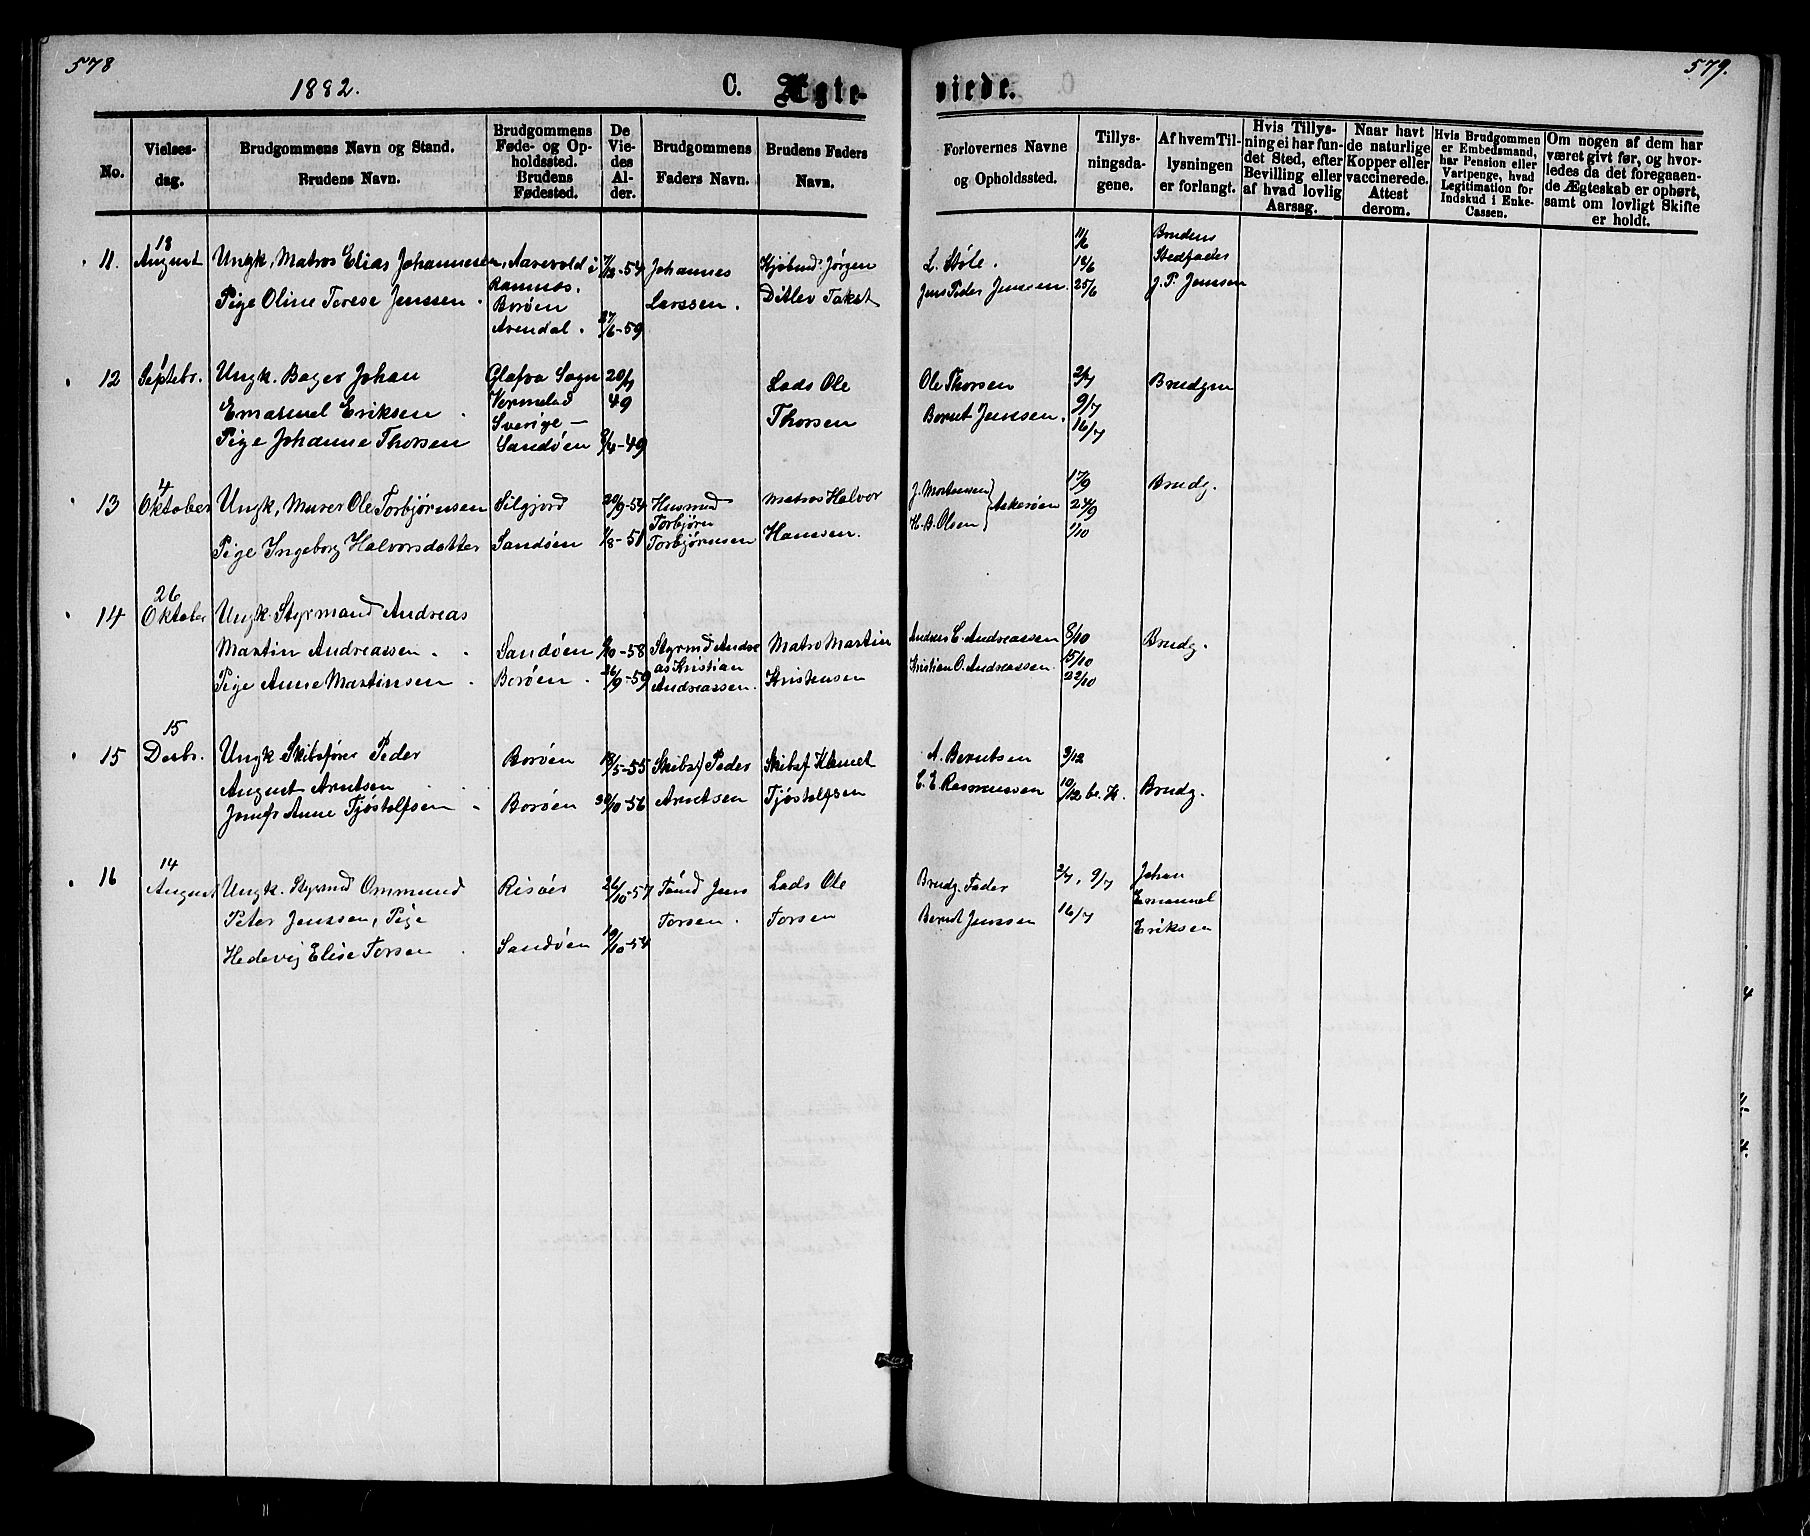 578
579.
1882.
C. Ægte-
viede.
No.
Vielses-
dag.
Brudgommens Navn og Stand.
Brudens Navn.
Brudgommens
Føde- og Op-
holdssted.
Brudens
Fødested.
De
Vie-
des
Al-
der.
Brudgommens
Faders Navn.
Brudens Faders
Navn.
Forlovernes Navne
og Opholdssted.
Tillys-
ningsda-
gene.
Af hvem Til-
lysningen
er forlangt.
Hvis Tillys-
ning ei har fun-
det Sted, efter
Bevilling eller
af hvad lovlig
Aarsag.
Naar havt
de naturlige
Kopper eller
vaccinerede.
Attest
derom.
Hvis Brudgommen
er Embedsmand,
har Pension eller
Vartpenge, hvad
Legitimation for
Indskud i Enke-
Cassen.
Om nogen af dem har
været givt før, og hvor-
ledes da det foregaaen-
de Ægteskab er ophørt,
samt om lovligt Skifte
er holdt.
11.
18
August
Ungk, Matros Elias Johannesen,
Pige Oline Terese Jenssen.
Aarevold i
Ramnæs.
Borøen
Arendal.
27/6-59
Johannes
Larssen.
Jørgen
Ditlev Takst
L. Støle.
Jens Peder Jenssen
11/6
18/6
25/6
Brudens
Stedfader
J. P. Jenssen
12
1
Septebr.
Ungk. Bager Johan
Emanuel Eriksen.
Pige Johanne Thorsen
Glafva Sogn
Vermelad
Sverige -
Sandøen
20/7
49
8/4-49
Lods Ole
Thorsen
Ole Thorsen
Bernt Jenssen.
2/7
9/7
16/7
Brudgm
13
4
Oktober
Ungk, Murer Ole Torbjørnsen
Pige Ingeborg Halvorsdatter
Silgjord
Sandøen
20/9-54
1/8-51
Husmnd
Torbjørn
Torbjørnsen
Matros Halvor
Hansen.
J. Mortensen
H. B. Olsen
Askerøen
17/9
24/9
1/10
Brudg.
14
26
Oktober
Ungk. Styrmand Andreas
Martin Andreassen.
Pige Anne Martinsen.
Sandøen
Borøen.
/10-58
26/9-59
Styrmd Andre
as Kristian
Andreassen.
Matro Martin
Kristensen
Anders C. Andreassen
Kristian O. Andreassen.
8/10
15/10
22/10
Brudg.
15
15
Decbr.
Ungk Skibsfører Peder
August Arntsen
Jomfr Anne Tjøstolfsen.
Borøen
Borøen
18/5-55
30/10-56
Skibsf Peder
Arntsen
Skibsf Kanut
Tjøstolfsen
A. Berntsen
C. E. Rasmussen
3/12
10/12 be. K.
Brudg.
16
14
August
Ungk. Styrmd Ommund
Peter Jenssen, Pige
Hedevig Elise Torsen.
Risøer
Sandøen
26/10-57
19/10-54
Tømd Jens
Torsen.
Lods Ole
Torsen
Brudg. Fader
Bernt Jenssen
2/7, 9/7
16/7
Johan
Emanuel
Eriksen